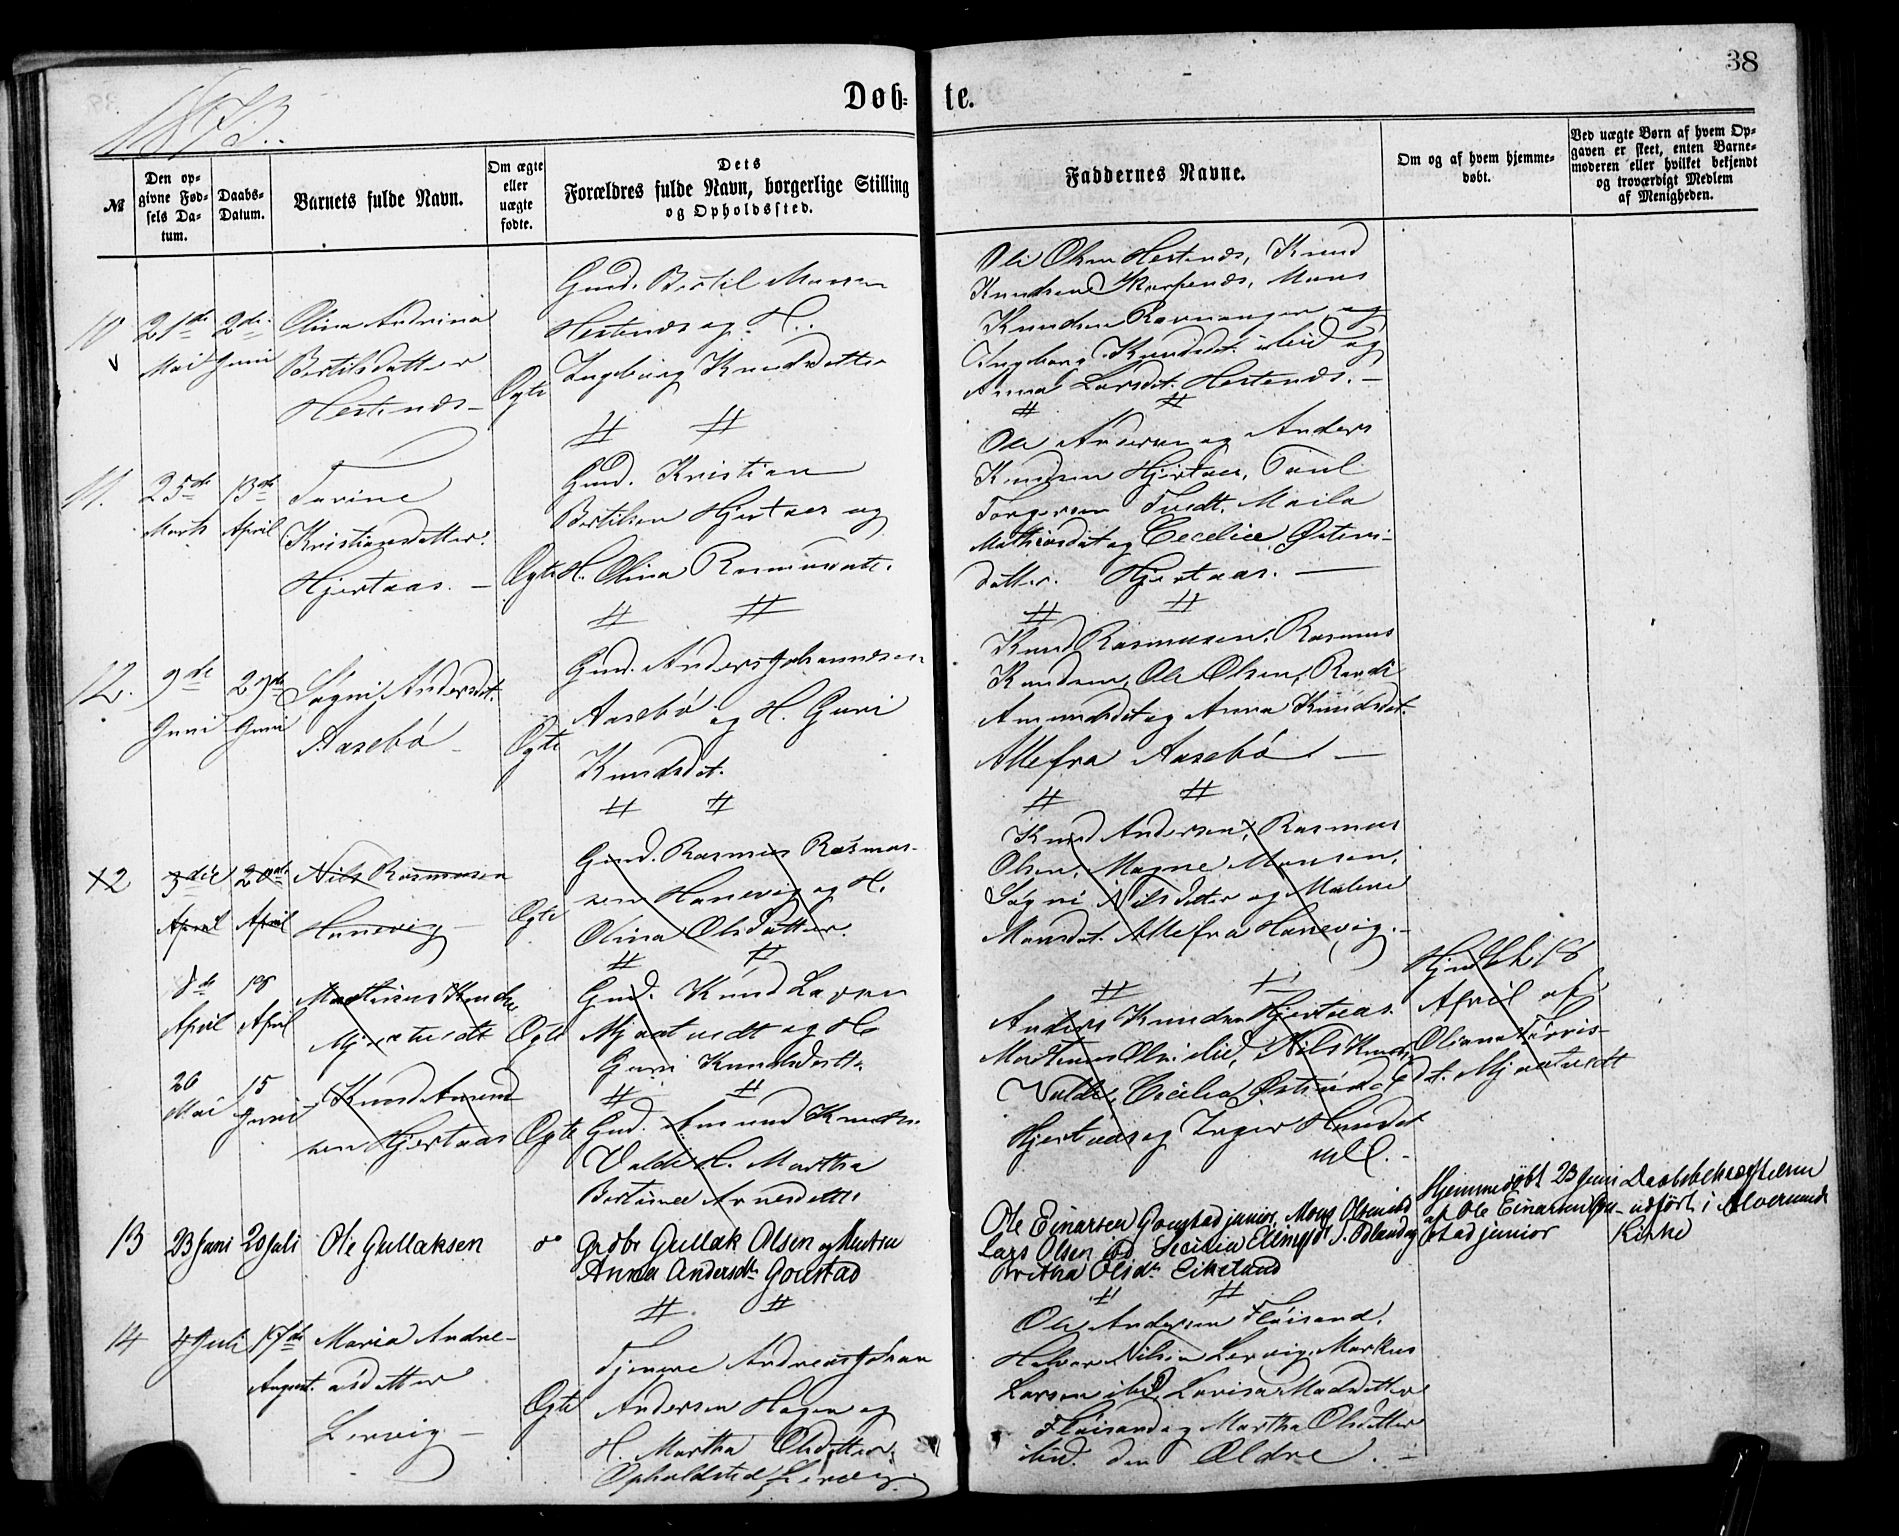 38
1873.
Døb- te.
№
Den op-
givne Fød-
sels Da-
tum.
Daabs-
Datum.
Barnets fulde Navn.
Om ægte
eller
uægte
fødte.
Dets
Forældres fulde Navn, borgerlige Stilling
og Opholdssted.
Faddernes Navne.
Om og af hvem hjemme-
døbt.
Ved uægte Børn af hvem Op-
gaven er skeet, enten Barne-
moderen eller hvilket bekjendt
og troværdigt Medlem
af Menigheden.
10
21de
Mai
2den
Juni
Olina Andrina
Bertilsdatter
Hestenæs
Ægte
Gmd. Bertil Monsen
Hestenæs og H.
Ingeborg Knudsdatter
Ole Olsen Hestenæs, Knud
Knudsen Skarpenæs, Mons
Knudsen Ravnanger og
Ingeborg Knudsdt. ibid og
Anna Larsdt. Hestenæs.
11.
25de
Marts
13de
April
Kristiansdatter
Hjertaas.
Ægte
Gmd. Kristian
Bertilsen Hjertaas og
H. Olina Rasmusdatt.
Ole Andersen og Anders
Knudsen Hjertaas,
Torgersen Tvedt,
Mathiasdat og Cecelia Østens-
datter. Hjertaas.
12.
9de
Juni
29de
Juni
Søgni Andersdt.
Aasebø
Ægte
Gmd. Anders Johannesen
Aasebø og H. Guri
Knudsdt.
Knud Rasmussen, Rasmus
Knudsen, Ole Olsen, Randi
Amundsdt og Anna Knudsdt.
Alle fra Aasebø
12
3die
April
20de
April
Nils Rasmussen
Hanevig
Ægte
Gmd. Rasmus Rasmus-
sen Hanevig og H.
Olina Olsdatter.
Knud Andersen, Rasmus
Olsen, Magne Monsen,
Søgni Nilsdatter og Malene
Monsdt. Alle fra Hanevig.
8de
April
18
April
Martinus Knudsen
Mjaatvedt
Ægte
Gmd. Knud Larsen
Mjaatvedt og H.
Guri Knudsdatt.
Anders Knudsen Hjertaas.
Nils Knuds
18
April af
Oliana
dt. Mjaatvedt
26
Mai
15
Juni
Knud Amund-
sen Hjertaas
Ægte
Gmd. Amund Knudsen
Valde H. Martha
Bertinea Arnesdatter
Valde, Cecilia
Hjertaas og Inger
13
23 Juni
20 Juli
Ole Gullaksen
Grdbr Gullak Olsen og Hustru
Anna Andersdtr Goustad
Ole Einarsen Goustad junior, Mons Olsen ibd
Lars Olsen ibd
Britha Olsdtr Eikeland
Hjemmedøbt 23 Juni
af Ole Einarsen Gou-
stad junior
Daabsbekræftelsen
udført i Alversunds
Kirke
14
4 Juli
17de
August.
Maria Andre-
asdatter
Lervig
Ægte
Tjenere Andreas Johan
Andersen Hagen og
H. Martha Olsdatter.
Opholdsted Lervig.
Ole Andersen Fløisand,
Halvor Nilsen Lervig, Markus
Larsen ibd, Lovisa Madsdatter
Fløisand og Martha Olsdatter
ibid. den Ældre.